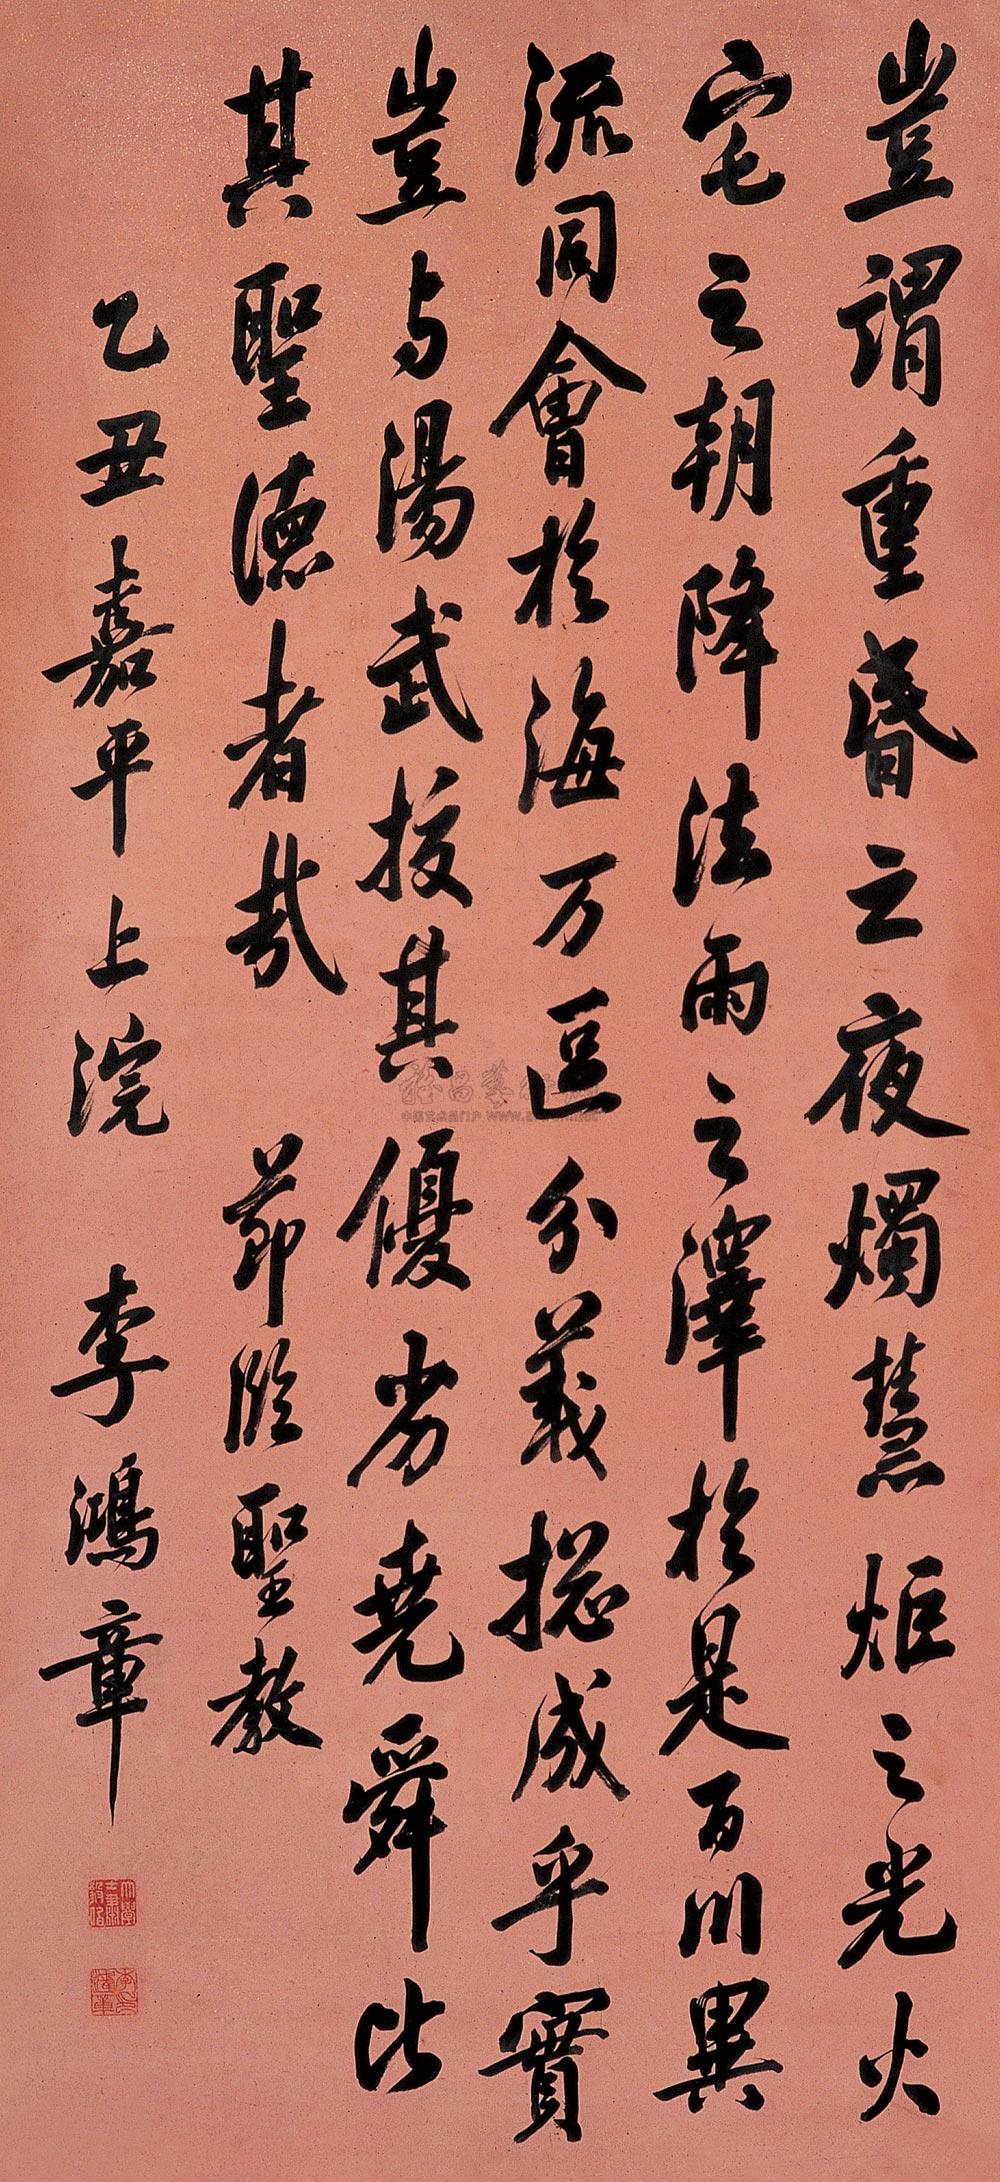 豈謂重昏之夜燭慧炬之光火
宅之朝降法雨之澤於是百川異
流同會於海万區分義揔成乎實
豈与湯武挍其優劣堯舜比
其聖德者哉 節臨聖教
乙丑嘉平上浣 李鴻章
大學士肅毅伯